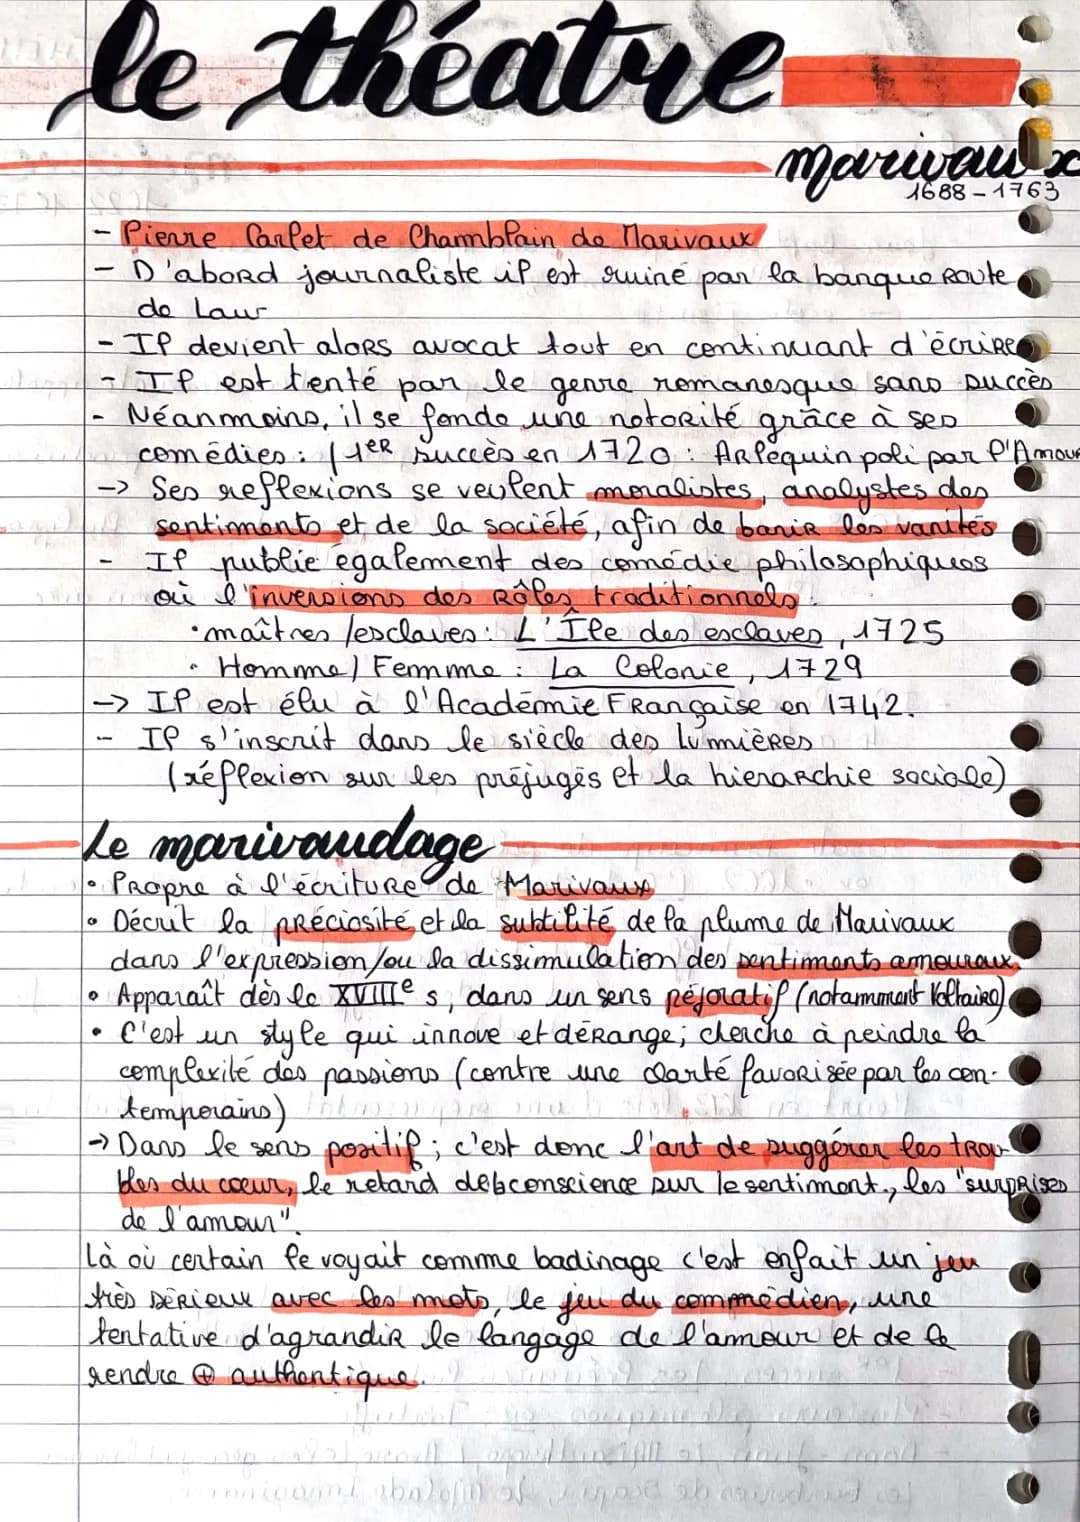 le théatre
marivaux
1688-1763
- Pierre Carlet de Chamblain de Marivaux
- D'abord journaliste il est ruiné par la banqueRoute
de Law
- Il devient alors avocat tout en continuant d'écrire
- Il est tenté par le genre romanesque sans succès
- Néanmoins, il se fonde une notorité grâce à ses
comédies : (1er succès en 1720 : Arlequin poli par l'Amour
-> Ses reflexions se veulent moralistes, analystes des
sentiments et de la société, afin de banir les vanités
- Il publie également des comédie philosophiques
où l'inversions des Rôles traditionnels :
• maîtres/esclaves : L'Île des esclaves, 1725
• Homme/Femme : La Colonie, 1729
-> Il est élu à l'Académie Française en 1742.
- Il s'inscrit dans le siècle des lumières
(réflexion sur les préjugés et la hierarchie sociale)
Le marivaudage
• Propre à l'écriture de Marivaux
• Décrit la préciosité et la subtilité de la plume de Marivaux
dans l'expression/ou la dissimulation des sentiments amoureux.
• Apparaît dès le XVIIIe s, dans un sens péjoratif (notamment Voltaire)
• C'est un style qui innove et dérange ; cherche à peindre la
complexité des passions (contre une clarté favorisée par les con-
temporains)
-> Dans le sens positif ; c'est donc l'art de suggérer les trou-
bles du cœur, le retard de conscience sur le sentiment, les "surprises
de l'amour".
Là où certain le voyait comme badinage c'est enfait un jeu
très sérieux avec les mots, le jeu du commédien, une
tentative d'agrandir le langage de l'amour et de le
rendre ⊕ authentique.